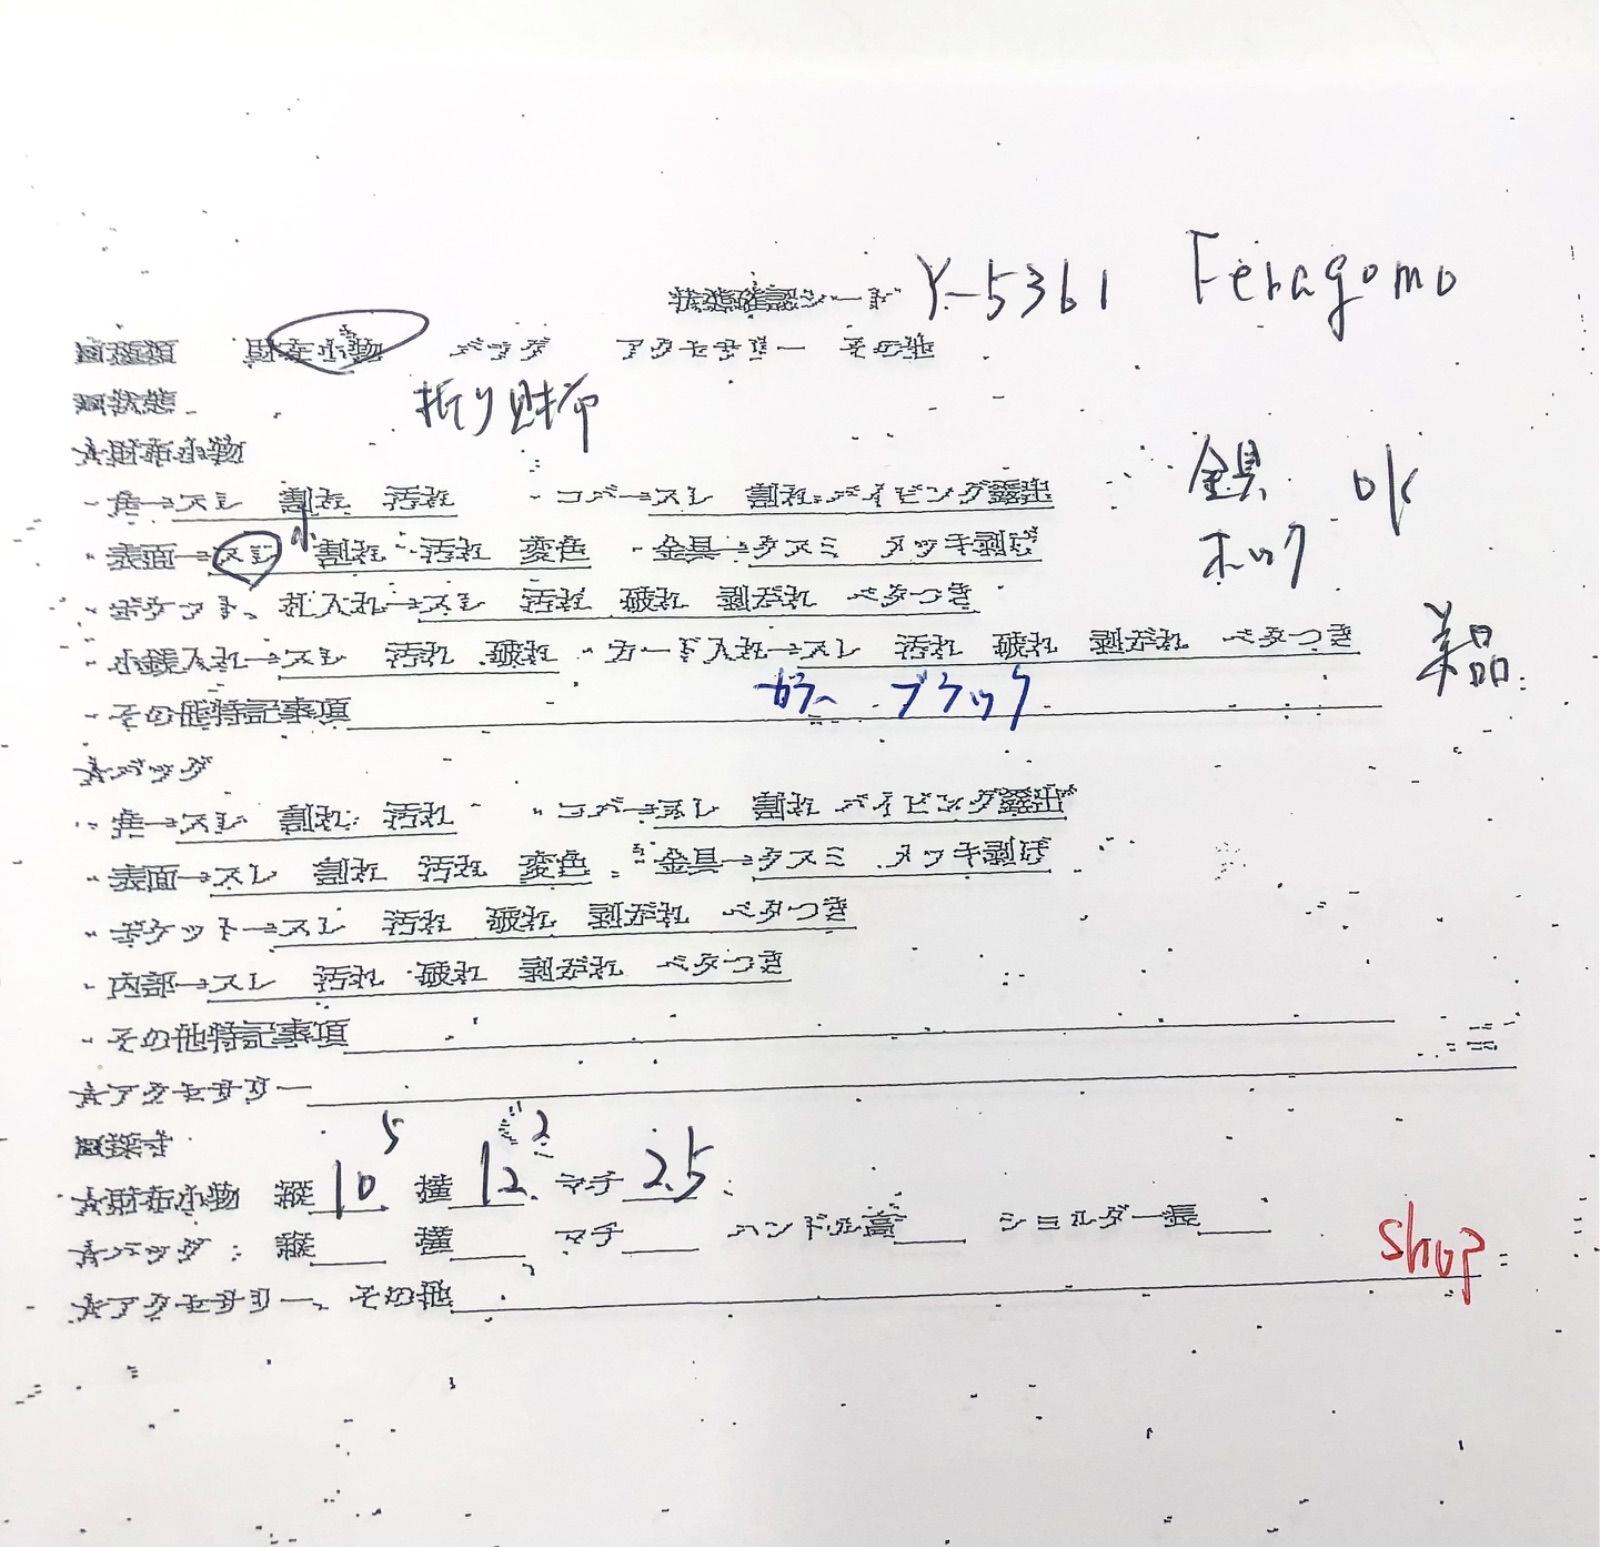 状態確認シート Y-5361 Feragomo
回種類 財布小物 バッグ アクセサリー その他
回状態
折り財布
☆財布小物
・角→スレ 割れ 汚れ ・コバ→スレ 割れ パイピング露出
金具 OK
・表面→スレ 小 割れ 汚れ 変色 ・金具→クスミ メッキ剥げ
ホック
・ポケット、札入れ→スレ 汚れ 破れ 剥がれ ベタつき
・小銭入れ→スレ 汚れ 破れ ・カード入れ→スレ 汚れ 破れ 剥がれ ベタつき
美品
・その他特記事項 カラー ブラック
☆バッグ
・角→スレ 割れ 汚れ ・コバ→スレ 割れ パイピング露出
・表面→スレ 割れ 汚れ 変色 ・金具→クスミ メッキ剥げ
・ポケット→スレ 汚れ 破れ 剥がれ ベタつき
・内部→スレ 汚れ 破れ 剥がれ ベタつき
・その他特記事項
☆アクセサリー
回採寸
5 2
☆財布小物 縦10. 横12. マチ2.5
☆バッグ:縦 横 マチ ハンドル高 ショルダー長
shop
☆アクセサリー、その他